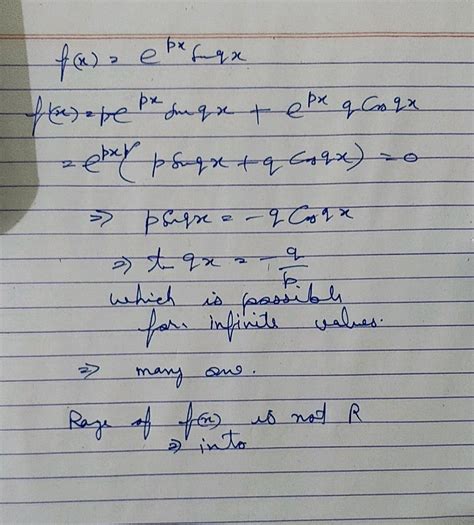 f(x) = e^{px} sin qx
f'(x) = p e^{px} sin qx + e^{px} q Cos qx
= e^{px} ( p sin qx + q Cos qx) = 0
⇒ p sin qx = - q Cos qx
⇒ t qx = - q/p
which is possible
for infinite values.
⇒ many one.
Rage of f(x) is not R
⇒ into